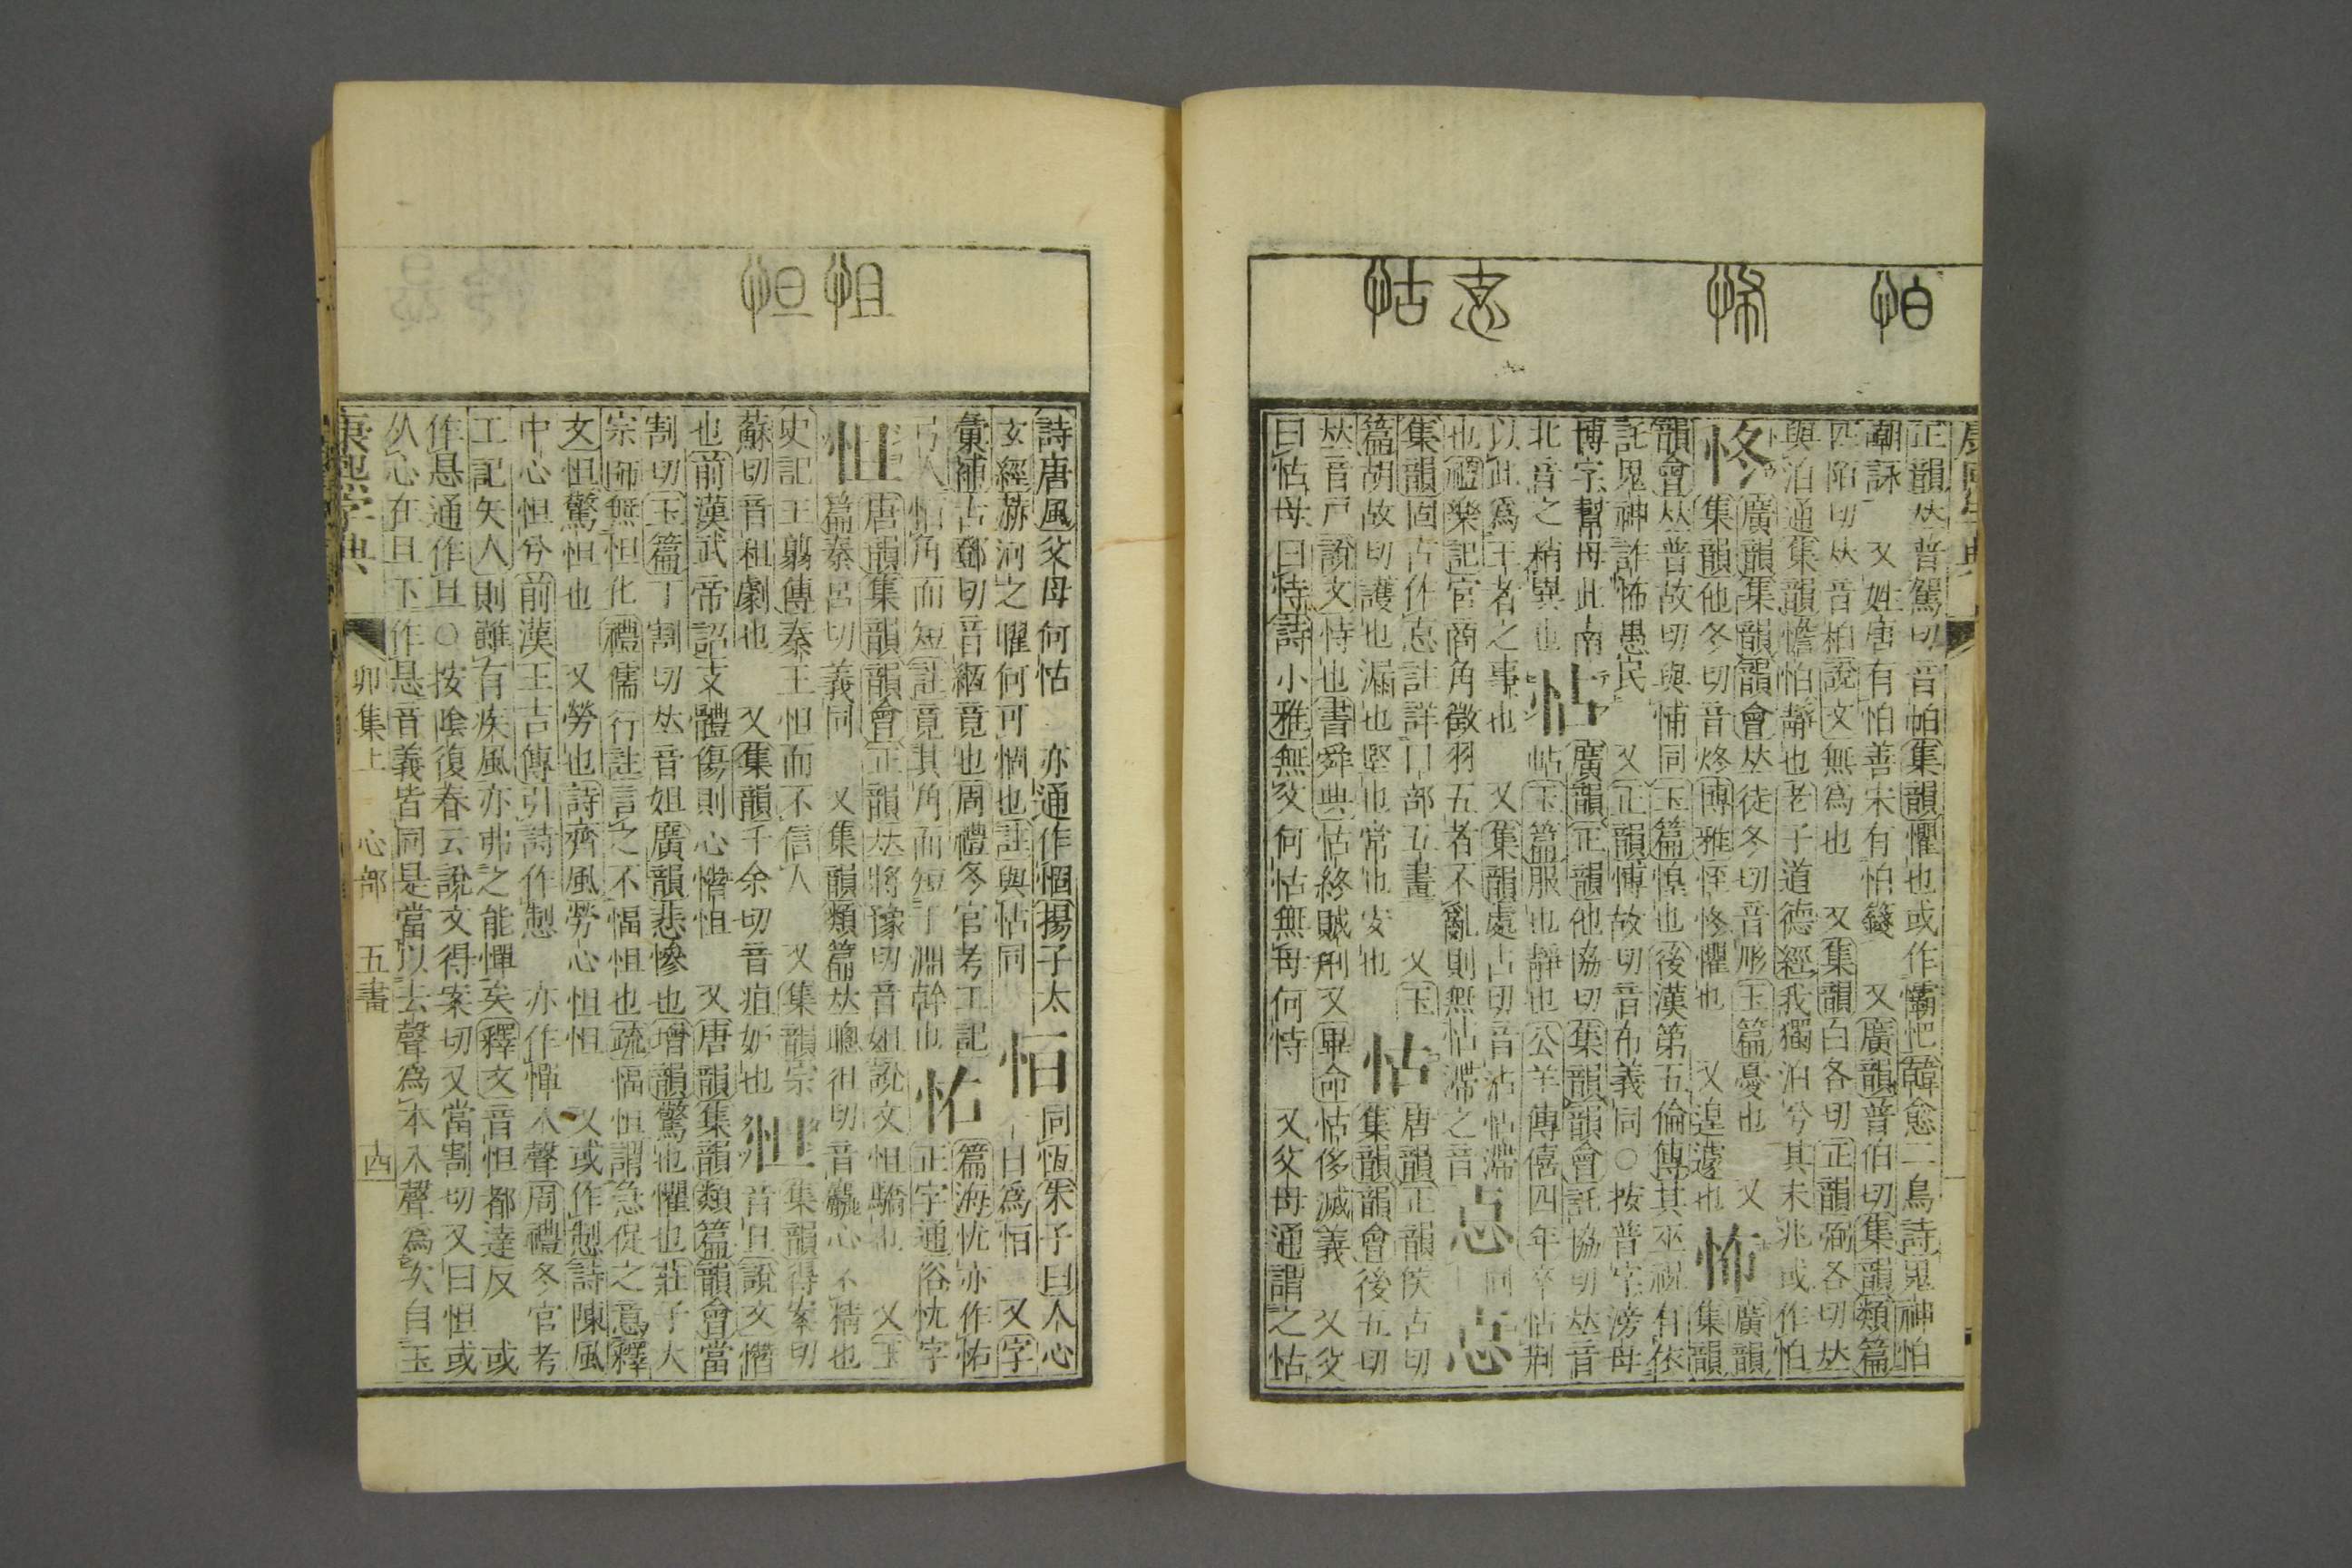 怕 怭 怘 怙
正韻𠀤普駕切音帕集韻懼也或作㶚㤄韓愈二鳥詩鬼神怕
嘲詠 又姓唐有怕善宋有怕籛 又廣韻普伯切集韻類篇
匹陌切𠀤音柏說文無爲也 又集韻白各切正韻弼各切𠀤
與泊通集韻憺怕靜也老子道德經我獨泊兮其未兆或作怕
㤏 廣韻集韻韻會𠀤徒冬切音彤玉篇憂也 又
集韻他冬切音炵博雅㤜㤏懼也 又遑遽也 怖 廣韻
集韻
韻會𠀤普故切與悑同玉篇惶也後漢第五倫傳其巫祝有依
託鬼神詐怖愚民 又正韻博故切音布義同○按普字滂母
博字幫母此南
北音之稍異也 怗 廣韻正韻他協切集韻韻會託協切𠀤音
帖玉篇服也靜也公羊傳僖四年卒怗荆
以此爲王者之事也 又集韻處占切音沾怗懘 
也禮樂記宮商角徵羽五者不亂則無怗懘之音 㤐 同
怘
集韻固古作怘註詳囗部五畫 又玉
篇胡故切護也漏也堅也常也安也 怙 唐韻正韻侯古切
集韻韻會後五切
𠀤音戸說文恃也書舜典怙終賊刑又畢命怙侈滅義 又父
曰怙母曰恃詩小雅無父何怙無母何恃 又父母通謂之怙
怚 怛
詩唐風父母何怙 亦通作㤥揚子太
玄經赫河之臞何可㤥也註與怙同 㤓 同恆朱子曰人心
一日爲恒 又字
彙補古鄧切音緪竟也周禮冬官考工記
弓人恒角而短註竟其角而短于淵幹也 㤑 篇海㤋亦作怞
正字通俗忱字
怚 唐韻集韻韻會正韻𠀤將豫切音姐說文怚驕也 又玉
篇秦呂切義同 又集韻類篇𠀤聰徂切音麤心不精也
史記王翦傳秦王怚而不信人 又集韻宗
蘇切音租劇也 又集韻千余切音疽妒也 怛 集韻得案切
音旦說文憯
也前漢武帝詔支體傷則心憯怛 又唐韻集韻類篇韻會當
割切玉篇丁割切𠀤音妲廣韻悲慘也增韻驚也懼也莊子大
宗師無怛化禮儒行註言之不愊怛也疏愊怛謂急促之意釋
文怛驚怛也 又勞也詩齊風勞心怛怛 又或作㤠詩陳風
中心怛兮前漢王吉傳引詩作㤠 亦作憚入聲周禮冬官考
工記矢人則雖有疾風亦弗之能憚矣釋文音怛都達反 或
作悬通作旦○按陰復春云說文得案切又當割切又曰怛或
从心在旦下作悬音義皆同是當以去聲爲本入聲爲次自玉
康熙字典 卯集上 心部 五畫 四